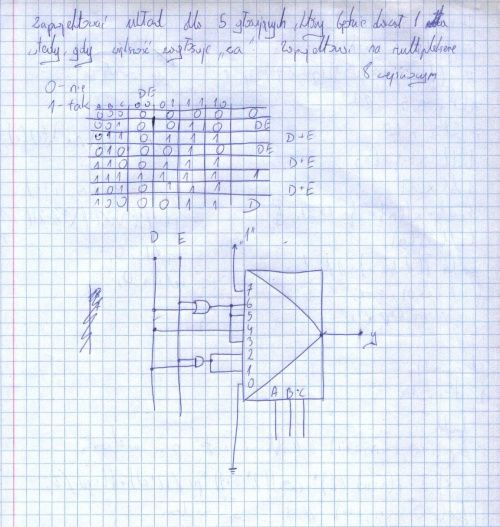 Zaprojektować układ dla 5 głosujących, który będzie dawał 1
wtedy, gdy większość zagłosuje „za". Zaprojektować na multiplekserze
8 wejściowym
0 - nie
1 - tak
DE
A B C 00 01 11 10
000 0 0 0 0 0
001 0 0 1 0 DE
011 0 1 1 1 D+E
010 0 0 1 0 DE
110 0 1 1 1 D+E
111 1 1 1 1 1
101 0 1 1 1 D+E
100 0 0 1 1 D
D E „1"
7
6
5
4
3
2
1
0
y
A B C